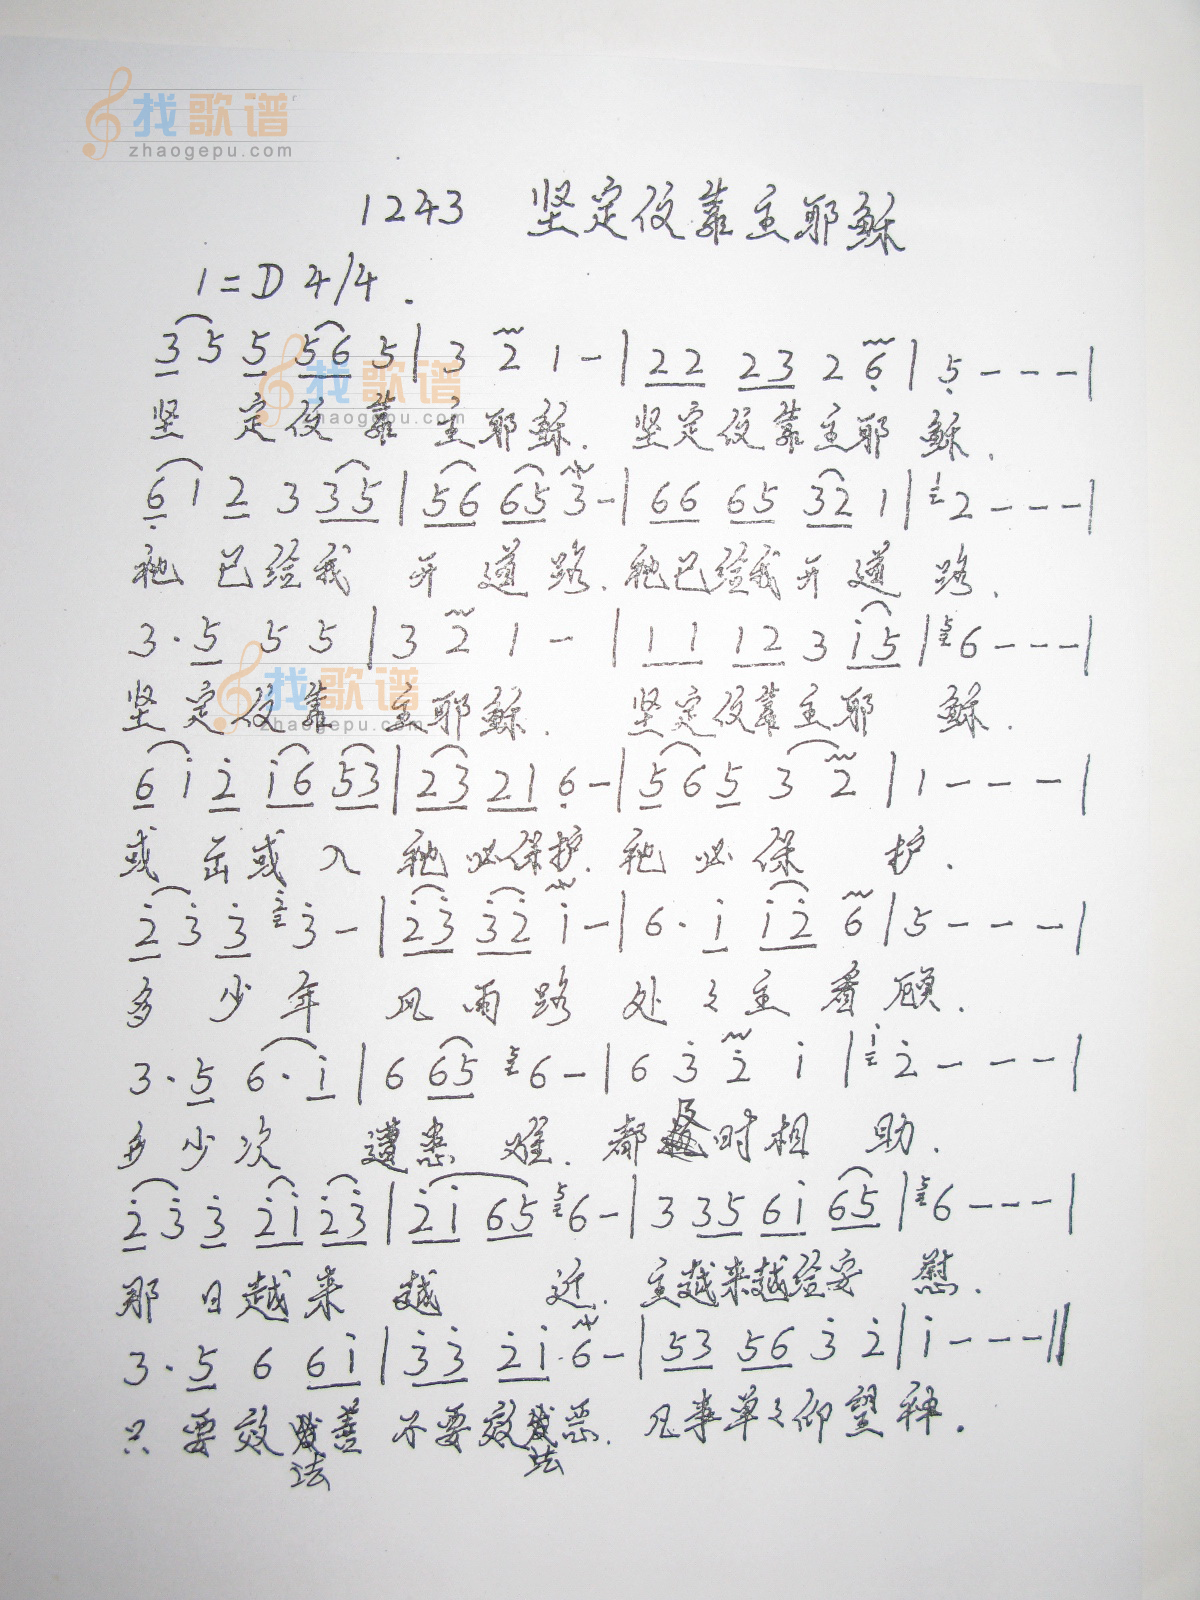 找歌谱
zhaogepu.com
1243 坚定倚靠主耶稣
1=D 4/4
3 5 5 5 6 5 | 3 2 1 - | 2 2 2 3 2 6̣ | 5̣ - - - |
找歌谱
zhaogepu.com
坚 定倚 靠 主耶稣. 坚定倚靠主耶 稣.
6̣ 1 2 3 3 5 | 5 6 6 5 3 - | 6 6 6 5 3 2 1 | 1 2 - - - |
祂 已给我 开 道 路. 祂已给我开 道 路.
3 · 5 5 5 | 3 2 1 - | 1 1 1 2 3 i 5 | 5 6 - - - |
找歌谱
zhaogepu.com
坚 定倚靠 主耶稣. 坚定倚靠主耶 稣.
6 i 2̇ i 6 5 3 | 2 3 2 1 6̣ - | 5 6 5 3 2 | 1 - - - |
或 出或 入 祂必保护. 祂 必 保 护.
2̇ 3̇ 3̇ 2̇ 3̇ - | 2̇ 3̇ 3̇ 2̇ i - | 6 · i i 2̇ 6 | 5 - - - |
多 少 年 风 雨 路 处々主 看顾.
3 · 5 6 · i | 6 6 5 5 6 - | 6 3̇ 2̇ i | i 2̇ - - - |
多少次 遭患 难. 都及时相 助.
2̇ 3̇ 3̇ 2̇ i 2̇ 3̇ | 2̇ i 6 5 5 6 - | 3 3 5 6 i 6 5 | 5 6 - - - |
那 日越来 越 近. 主越来越给安 慰.
3 · 5 6 6 i | 3̇ 3̇ 2̇ i 6 - | 5 3 5 6 3̇ 2̇ | i - - - ‖
只 要效法善 不要效法恶. 凡事单々仰望神.